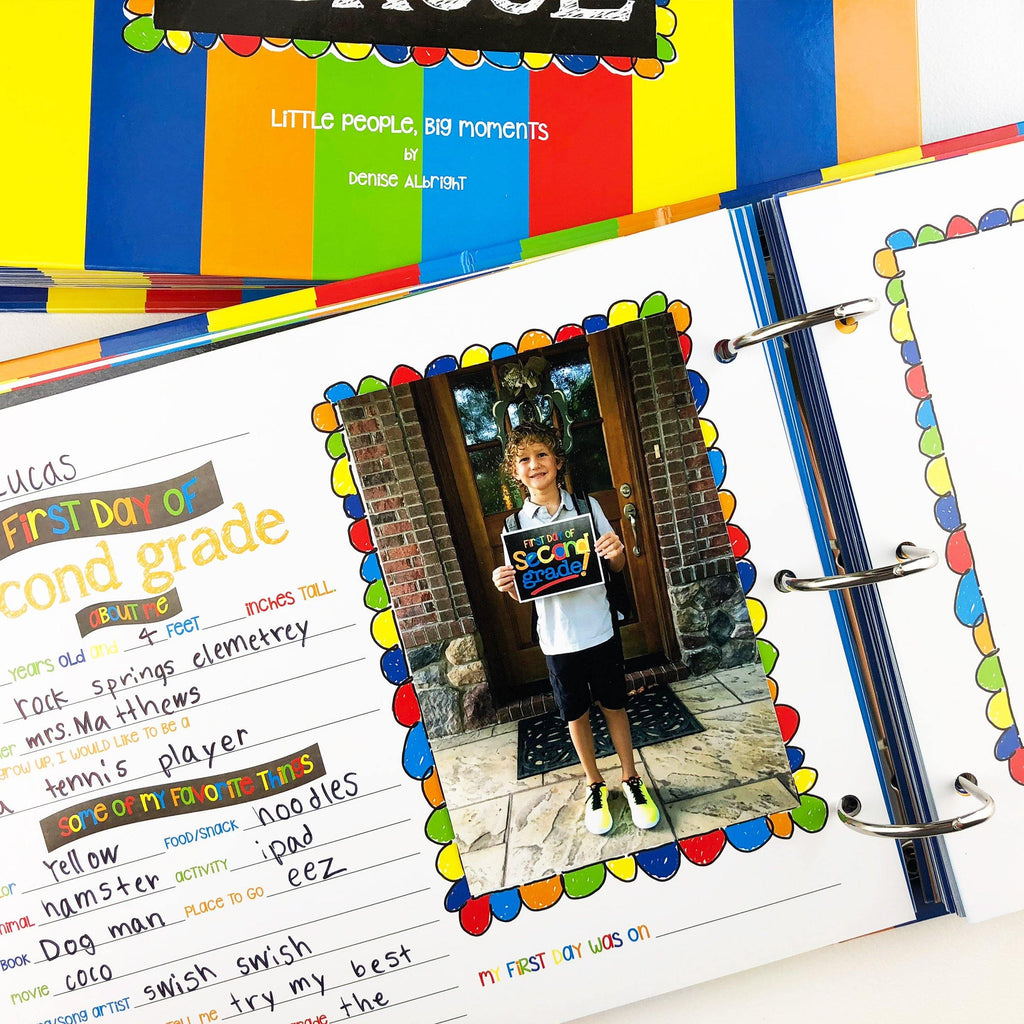 Little People, Big Moments
by
Denise Albright
Lucas
First Day of
cond grade
about me
years old and 4 feet inches tall.
rock springs elemetrey
mrs. Matthews
grow up, I would like to be a
tennis player
some of my favorite things
Yellow Food/Snack noodles
hamster activity ipad
Book Dog man Place to go eez
movie coco
song artist swish swish
Tell me try my best
the
First Day of
second
grade!
my First Day was on